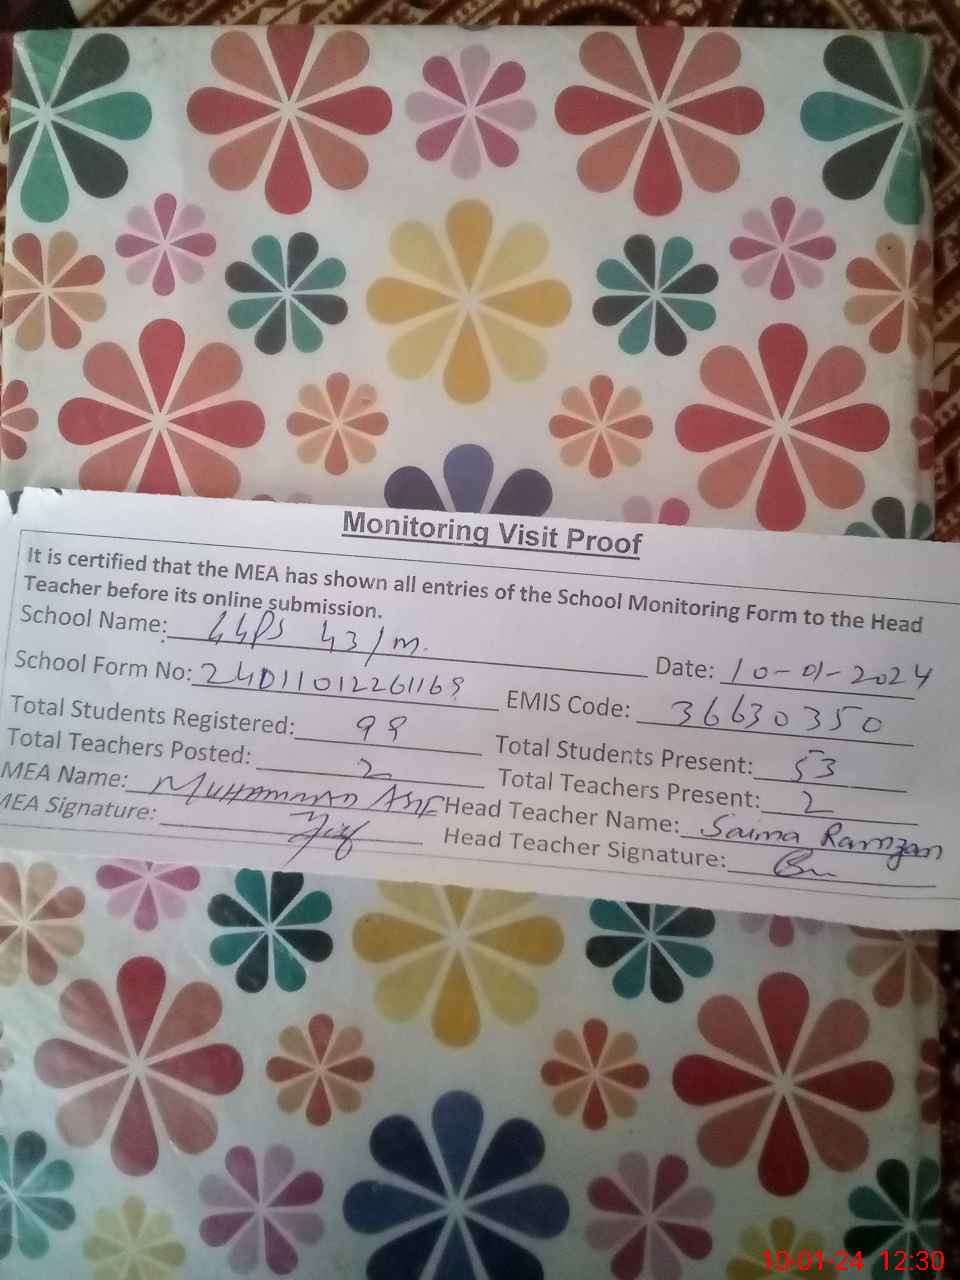 Monitoring Visit Proof
It is certified that the MEA has shown all entries of the School Monitoring Form to the Head
Teacher before its online submission.
School Name: GGPS 43/M. Date: 10-01-2024
School Form No: EMIS Code: 36630350
Total Students Registered: Total Students Present: 53
Total Teachers Posted: 2 Total Teachers Present: 2
MEA Name: Muhammad Head Teacher Name: Saima Ramzan
MEA Signature: Head Teacher Signature:
10-01-24 12:30